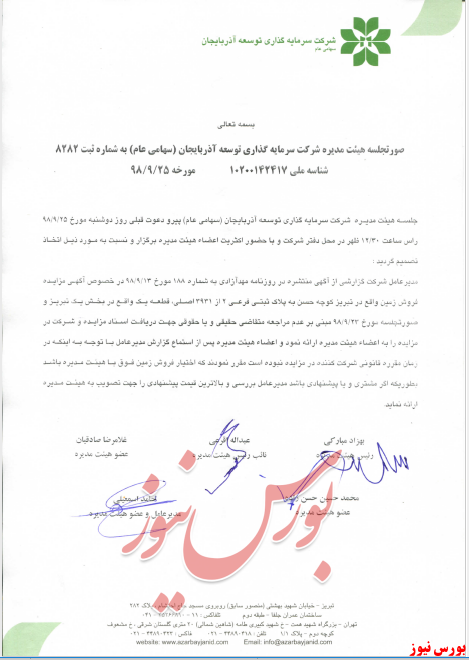 شرکت سرمایه گذاری توسعه آذربایجان
سهامی عام
بسمه تعالی
صورتجلسه هیئت مدیره شرکت سرمایه گذاری توسعه آذربایجان (سهامی عام) به شماره ثبت ۸۲۸۲
شناسه ملی ۱۰۲۰۰۱۴۲۴۱۷ مورخه ۹۸/۹/۲۵
جلسه هیئت مدیره شرکت سرمایه گذاری توسعه آذربایجان (سهامی عام) پیرو دعوت قبلی روز دوشنبه مورخ ۹۸/۹/۲۵
راس ساعت ۱۲/۳۰ ظهر در محل دفتر شرکت و با حضور اکثریت اعضاء هیئت مدیره برگزار و نسبت به مورد ذیل اتخاذ
تصمیم گردید :
مدیرعامل شرکت گزارشی از آگهی منتشره در روزنامه مهدآزادی به شماره ۱۸۸ مورخ ۹۸/۹/۱۳ در خصوص آگهی مزایده
فروش زمین واقع در تبریز کوچه حسن به پلاک ثبتی فرعی ۲ از ۳۹۳۱ اصلی، قطعه یک واقع در بخش یک تبریز و
صورتجلسه مورخ ۹۸/۹/۲۳ مبنی بر عدم مراجعه متقاضی حقیقی و یا حقوقی جهت دریافت اسناد مزایده و شرکت در
مزایده را به اعضاء هیئت مدیره ارائه نمود و اعضاء هیئت مدیره پس از استماع گزارش مدیرعامل با توجه به اینکه در
زمان مقرره قانونی شرکت کننده در مزایده نبوده است مقرر نمودند که اختیار فروش زمین فوق با هیئت مدیره باشد
بطوریکه اگر مشتری و یا پیشنهادی باشد مدیرعامل بررسی و بالاترین قیمت پیشنهادی را جهت تصویب به هیئت مدیره
ارائه نماید.
بهزاد مبارکی عبداله غلامرضا صادقیان
رئیس هیئت مدیره نائب رئیس هیئت مدیره عضو هیئت مدیره
محمد حسین حسن اسمعیلی
عضو هیئت مدیره مدیرعامل و عضو هیئت مدیره
بورس نیوز
تبریز - خیابان شهید بهشتی (منصور سابق) روبروی مسجد پلاک ۲۸۲
ساختمان عمران جلفا - طبقه دوم تلفاکس :
تهران - بزرگراه شهید همت - خ شهید کبیری طامه (شاهین شمالی) ۲۰ متری گلستان شرقی - خ مشعوف
کوچه دوم - پلاک ۱/۱ تلفن : فاکس :
website: www.azarbayjanid.com Email: info@azarbayjanid.com
بورس نیوز